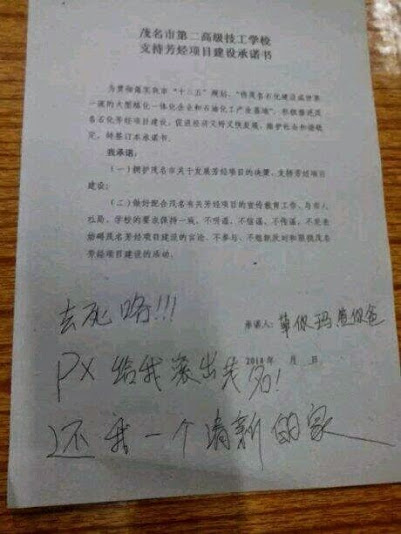 茂名市第二高级技工学校
支持芳烃项目建设承诺书
为贯彻落实我市“十二五”规划，“将茂名石化建设成世界
一流的大型炼化一体化企业和石油化工产业基地”，积极推进茂
名石化芳烃项目建设，促进经济又好又快发展，维护社会和谐稳
定，特签订本承诺书。
我承诺：
（一）拥护茂名市关于发展芳烃项目的决策，支持芳烃项目
建设；
（二）做好配合茂名有关芳烃项目的宣传教育工作，与市人
社局、学校的要求保持一致，不听谣、不信谣、不传谣，不发表
妨碍茂名芳烃项目建设的言论，不参与、不组织反对和阻挠茂名
芳烃项目建设的活动。
承诺人：草你玛 你爸
2014年 月 日
去死咯!!!
PX 给我滚出茂名!
还我一个清新的家